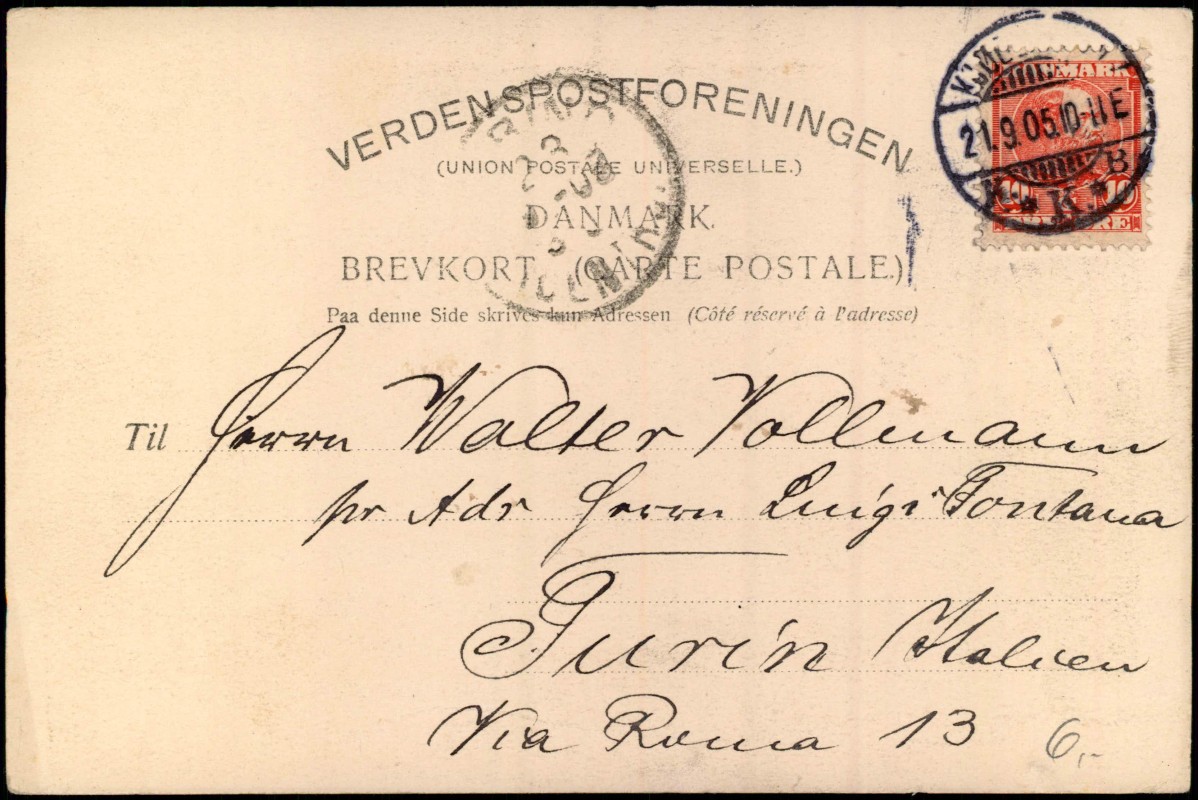 VERDENSPOSTFORENINGEN
(UNION POSTALE UNIVERSELLE.)
DANMARK.
BREVKORT. (CARTE POSTALE.)
Paa denne Side skrives kun Adressen (Côté réservé à l'adresse)
DANMARK
10 10
21.9.05.10-11E
K. * K. * B
Til Herrn Walter Vollmann
pr Adr Herrn Luigi Fontana
Turin Italien
Via Roma 13
6,-